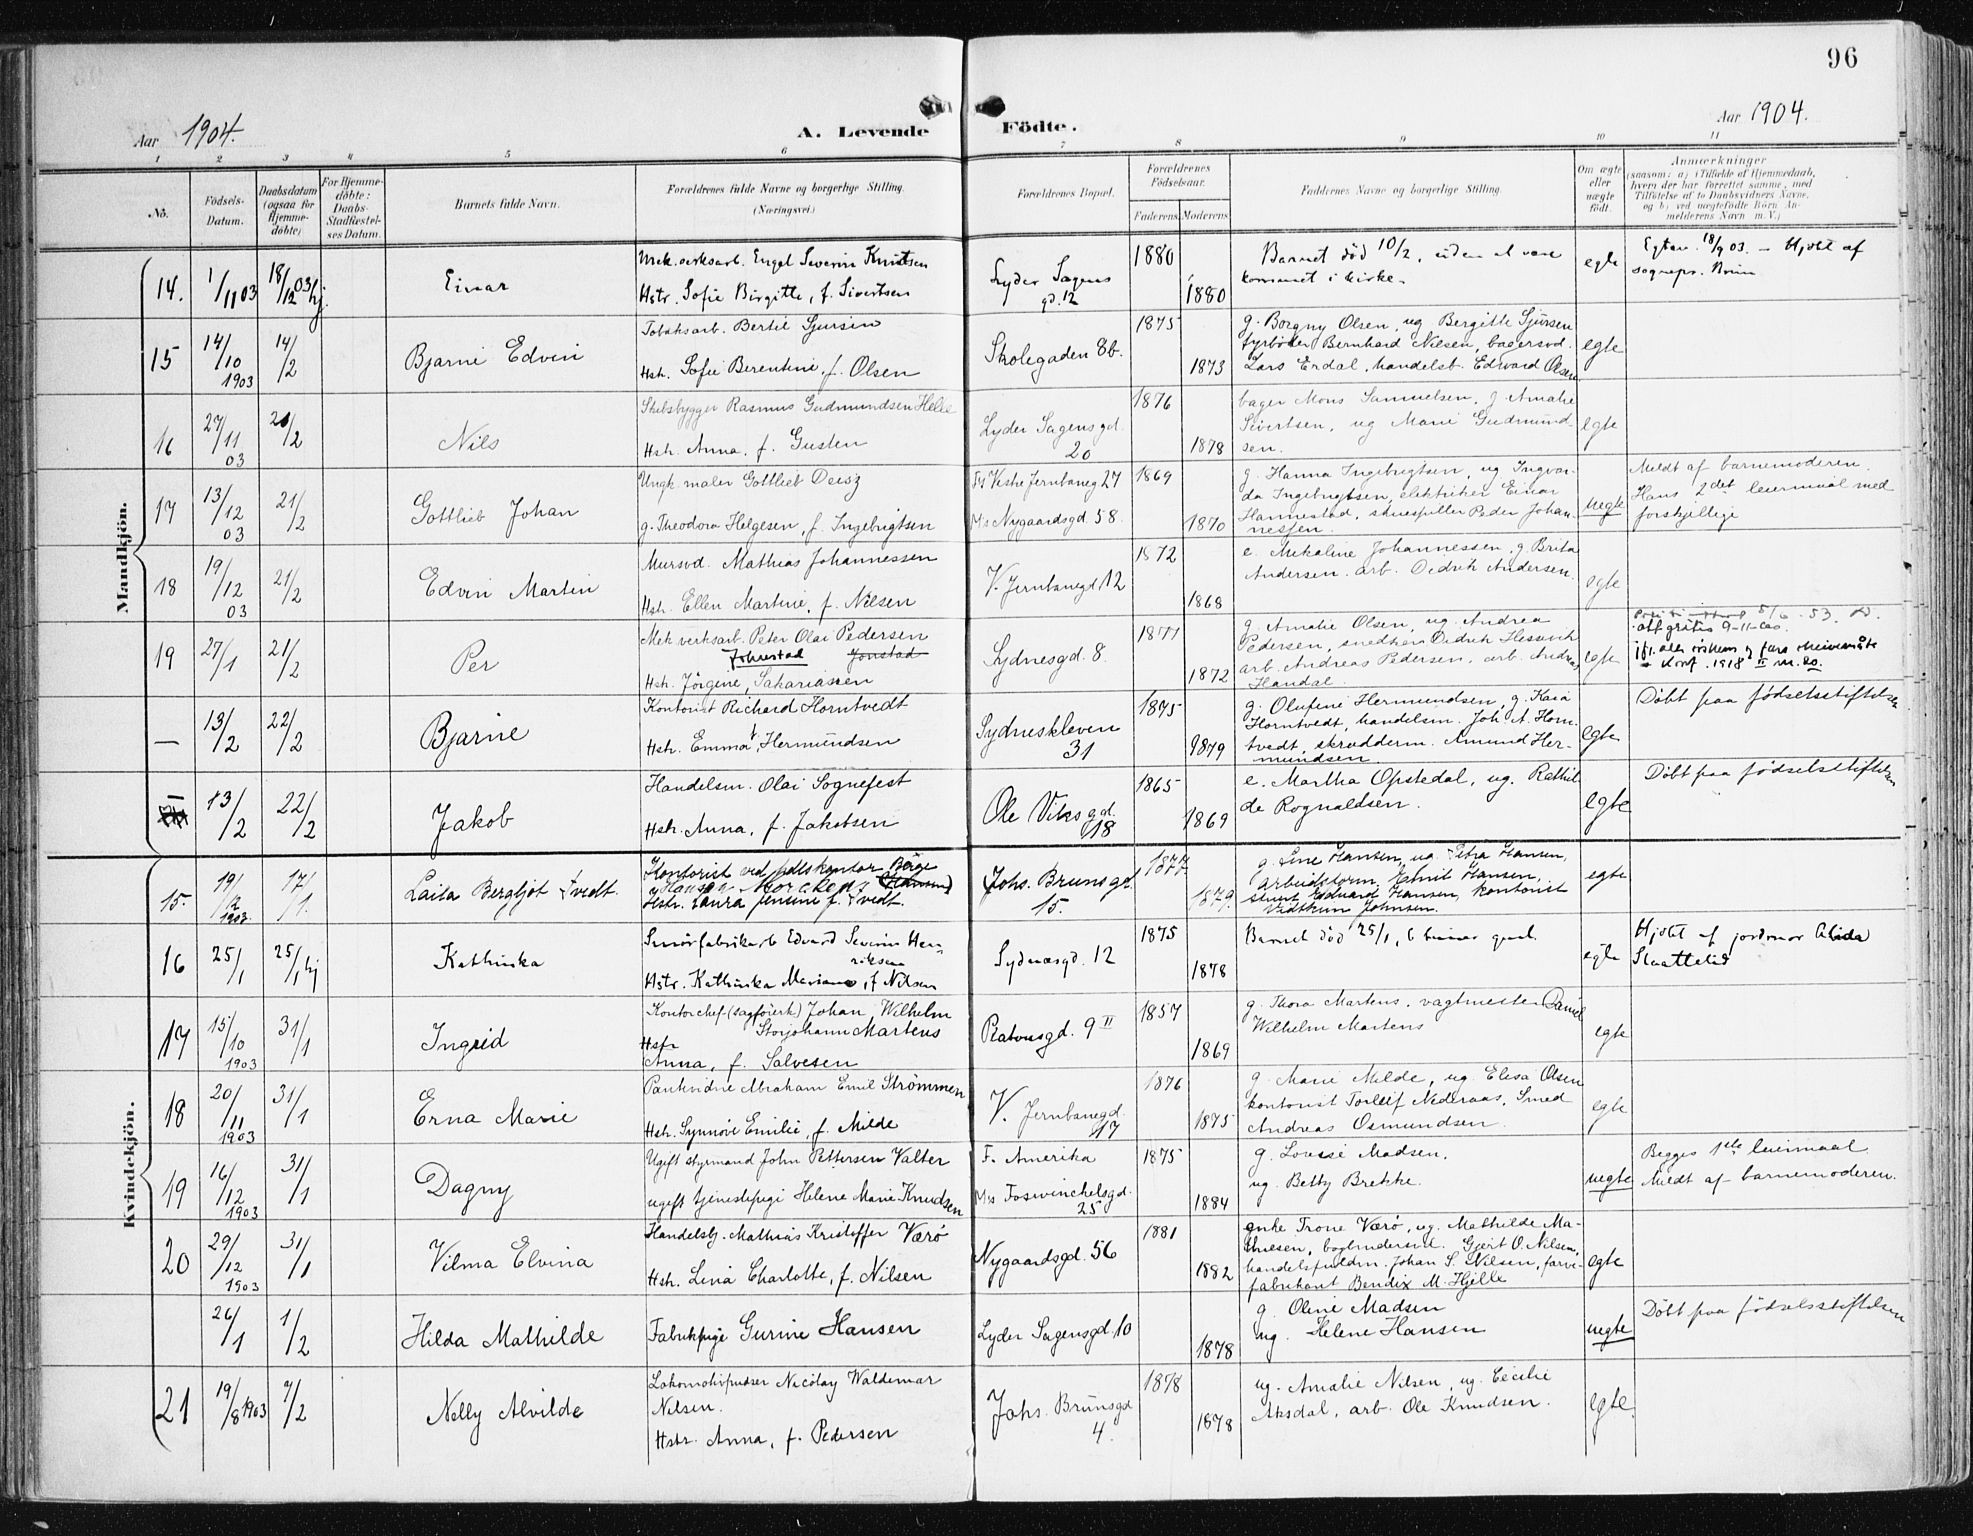 96
Aar 1904.
A. Levende Födte.
Aar 1904.
1 2 3 4 5 6 7 8 9 10 11
No.
Födsels-Datum.
Daabsdatum (ogsaa for Hjemme-döbte)
For Hjemme-döbte: Daabs-Stadfæstel-ses Datum.
Barnets fulde Navn.
Forældrenes fulde Navne og borgerlige Stilling. (Næringsvei.)
Forældrenes Bopæl.
Forældrenes Födselsaar.
Faderens. Moderens.
Faddernes Navne og borgerlige Stilling.
Om ægte eller uægte födt.
Anmærkninger
(saasom: a) i Tilfælde af Hjemmedaab,
hvem der har forrettet samme, med
Tilföielse af to Daabsvidners Navne,
og b) ved uægtefödte Börn An-
melderens Navn m. V.)
Mandkjön.
14. 1/11 03 18/12 03 hj. Einar
Mek.verksarb. Engel Severin Knutsen
Hstr. Sofie Birgitte, f. Sivertsen
Lyder Sagens
gd. 12
1880 1880
Barnet død 10/2, uden at være
kommet i kirke.
egte
Egtev. 18/9 03. – Hjdbt af
sognepr. Bruun
15 14/10 1903 14/2 Bjarne Edvin
Tobaksarb. Bertil Sjursen
Hstr. Sofie Berentine, f. Olsen
Skolegaden 8b.
1875 1873
g. Borgny Olsen, ug Bergitte Sjursen
fyrbøder Bernhard Nilsen, bagersvd.
Lars Erdal, handelsb. Edward Olsen
egte
16 27/11 03 21/2 Nils
Skibsbygger Rasmus Gudmundsen Helle
Hstr. Anna, f. Gusten
Lyder Sagensgd.
20
1876 1878
bager Mons Samuelsen, g Amalie
Sivertsen, ug Marie Gudmund-
sen.
egte
17 13/12 03 21/2 Gottlieb Johan
Ungk. maler Gottlieb Deisz
g. Theodora Helgesen, f. Ingebrigtsen
Fs Vestre Jernbaneg 27
Ms Nygaardsgd. 58.
1869 1870
g. Hanna Ingebrigtsen, ug Ingvar-
da Ingebrigtsen, elektriker Einar
Hannestad, skuespiller Peder Johan-
nesen.
uegte
Meldt af barnemoderen.
Hans 2det leiermaal med
forskjellige
18 19/12 03 21/2 Edvin Martin
Mursvd. Mathias Johannessen
Hstr. Ellen Martine, f. Nilsen
V. Jernbanegd 12
1872 1868
e. Mekaline Johannessen, g. Brita
Andersen, arb. Didrik Andersen.
egte
19 27/1 21/2 Per
Mek.verksarb. Peter Olai Pedersen
Johnstad Jonstad
Hstr. Jörgine, Sakariassen
Sydnesgd. 8.
1877 1872
g. Amalie Olsen, ug. Andrea
Pedersen, snedker Didrik Hesvik
arb. Andreas Pedersen, arb. Andreas
Handal.
egte
5/6 - 53.
att gratis 9-11-
Konf. 1918
— 13/2 22/2 Bjarne
Kontorist Richard Horntvedt
Hstr. Emma, Hermundsen
Sydneskleven
31
1875 1879
g. Olufine Hermundsen, g. Kaia
Horntvedt, handelsm. Joh. A. Horn-
tvedt, skrædderm. Amund Her-
mundsen
egte
Döbt paa födselsstiftelsen
— 13/2 22/2 Jakob
Handelsm. Olai Sognefest
Hstr. Anna, f. Jakobsen
Ole Viksgd.
18
1865 1869
e. Martha Opstedal, ug. Rathil-
de Rognaldsen.
egte
Döbt paa födselsstiftelsen
Kvindekjön.
15. 19/12 1903. 17/1. Laila Bergljot Tvedt.
Kontorist ved
Hansen
Hstr. Laura Jensine f. Tvedt.
Johs. Brunsgd.
15.
1877 1879.
g. Line Hansen, ug. Petra Hansen,
arbeidsform. Emil Hansen,
Eduard Hansen, kontorist
Johnsen.
egte
16 25/1 25/1 hj Kathinka
Smörfabrikarb Edvard Severin Hen-
riksen
Hstr. Kathinka Mariane, f Nilsen
Sydnæsgd. 12
1875 1878
Barnet död 25/1, 6 timer gml.
egte
Hjdbt af jordmor Alida
Slaattelid
17 15/10 1903 31/1 Ingrid
Kontorchef (sagförerk) Johan Wilhelm
Storjohann Martens
Hstr
Anna, f. Salvesen
Ratvusgd. 9 II
1857 1869
g. Thora Martens, vagtmester Daniel
Wilhelm Martens
egte
18 20/11 1903 31/1 Erna Marie
Pantvidne Abraham Emil Strömmen
Hstr. Synnöve Emilie, f. Milde
V. Jernbanegd.
17
1876 1875
g. Marie Milde, ug. Elisa Olsen
kontorist Torleif Nedraas, Smed
Andreas Osmundsen.
egte
19 16/12 1903 31/1 Dagny
Ugift styrmand John Pettersen Valter
ugift tjenestepige Helene Marie Knudsen
F. Amerika
Ms Foswinchelsgd.
25
1875 1884
g. Lovise Madsen,
ug. Betty Brekke.
uegte
Begges 1ste leiermaal
Meldt af barnemoderen.
20 29/12 1903 31/1 Vilma Elvina
Handelsb. Mathias Kristoffer Værö
Hstr. Lina Charlotte, f. Nilsen
Nygaardsgd. 56
1881 1882
enke Trone Værö, ug. Mathilde Ma-
thiesen, bogbindersvd. Gjert O. Nilsen,
handelsfuldm. Johan S. Nilsen, farve-
fabrikant Bendix M. Hjelle
egte
26/1 1/2 Hilda Mathilde
Fabrikpige Gurine Hansen
Lyder Sagensgd. 10
1878
g. Oline Madsen
ug. Helene Hansen
uegte
Döbt paa födselsstiftelsen
21 19/8 1903 7/2 Nelly Alvilde
Lokomotivpudser Nicolay Waldemar
Nilsen.
Hstr. Anna, f. Pedersen
Johs. Brunsgd
4.
1878 1878
ug. Amalie Nilsen, ug. Cecilie
Aksdal, arb. Ole Knudsen.
egte.